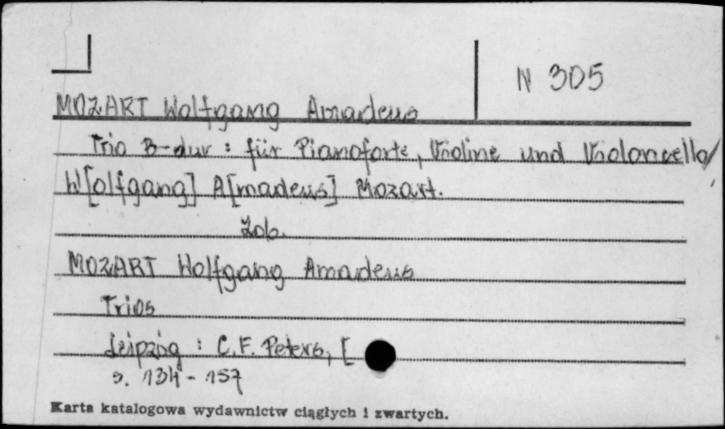 N 305
MOZART Wolfgang Amadeus
Trio B-dur : für Pianoforte, Violine und Violoncello/
W[olfgang] A[madeus] Mozart.
Zob.
MOZART Wolfgang Amadeus
Trios
Leipzig : C.F. Peters, [
s. 134-157
Karta katalogowa wydawnictw ciągłych i zwartych.